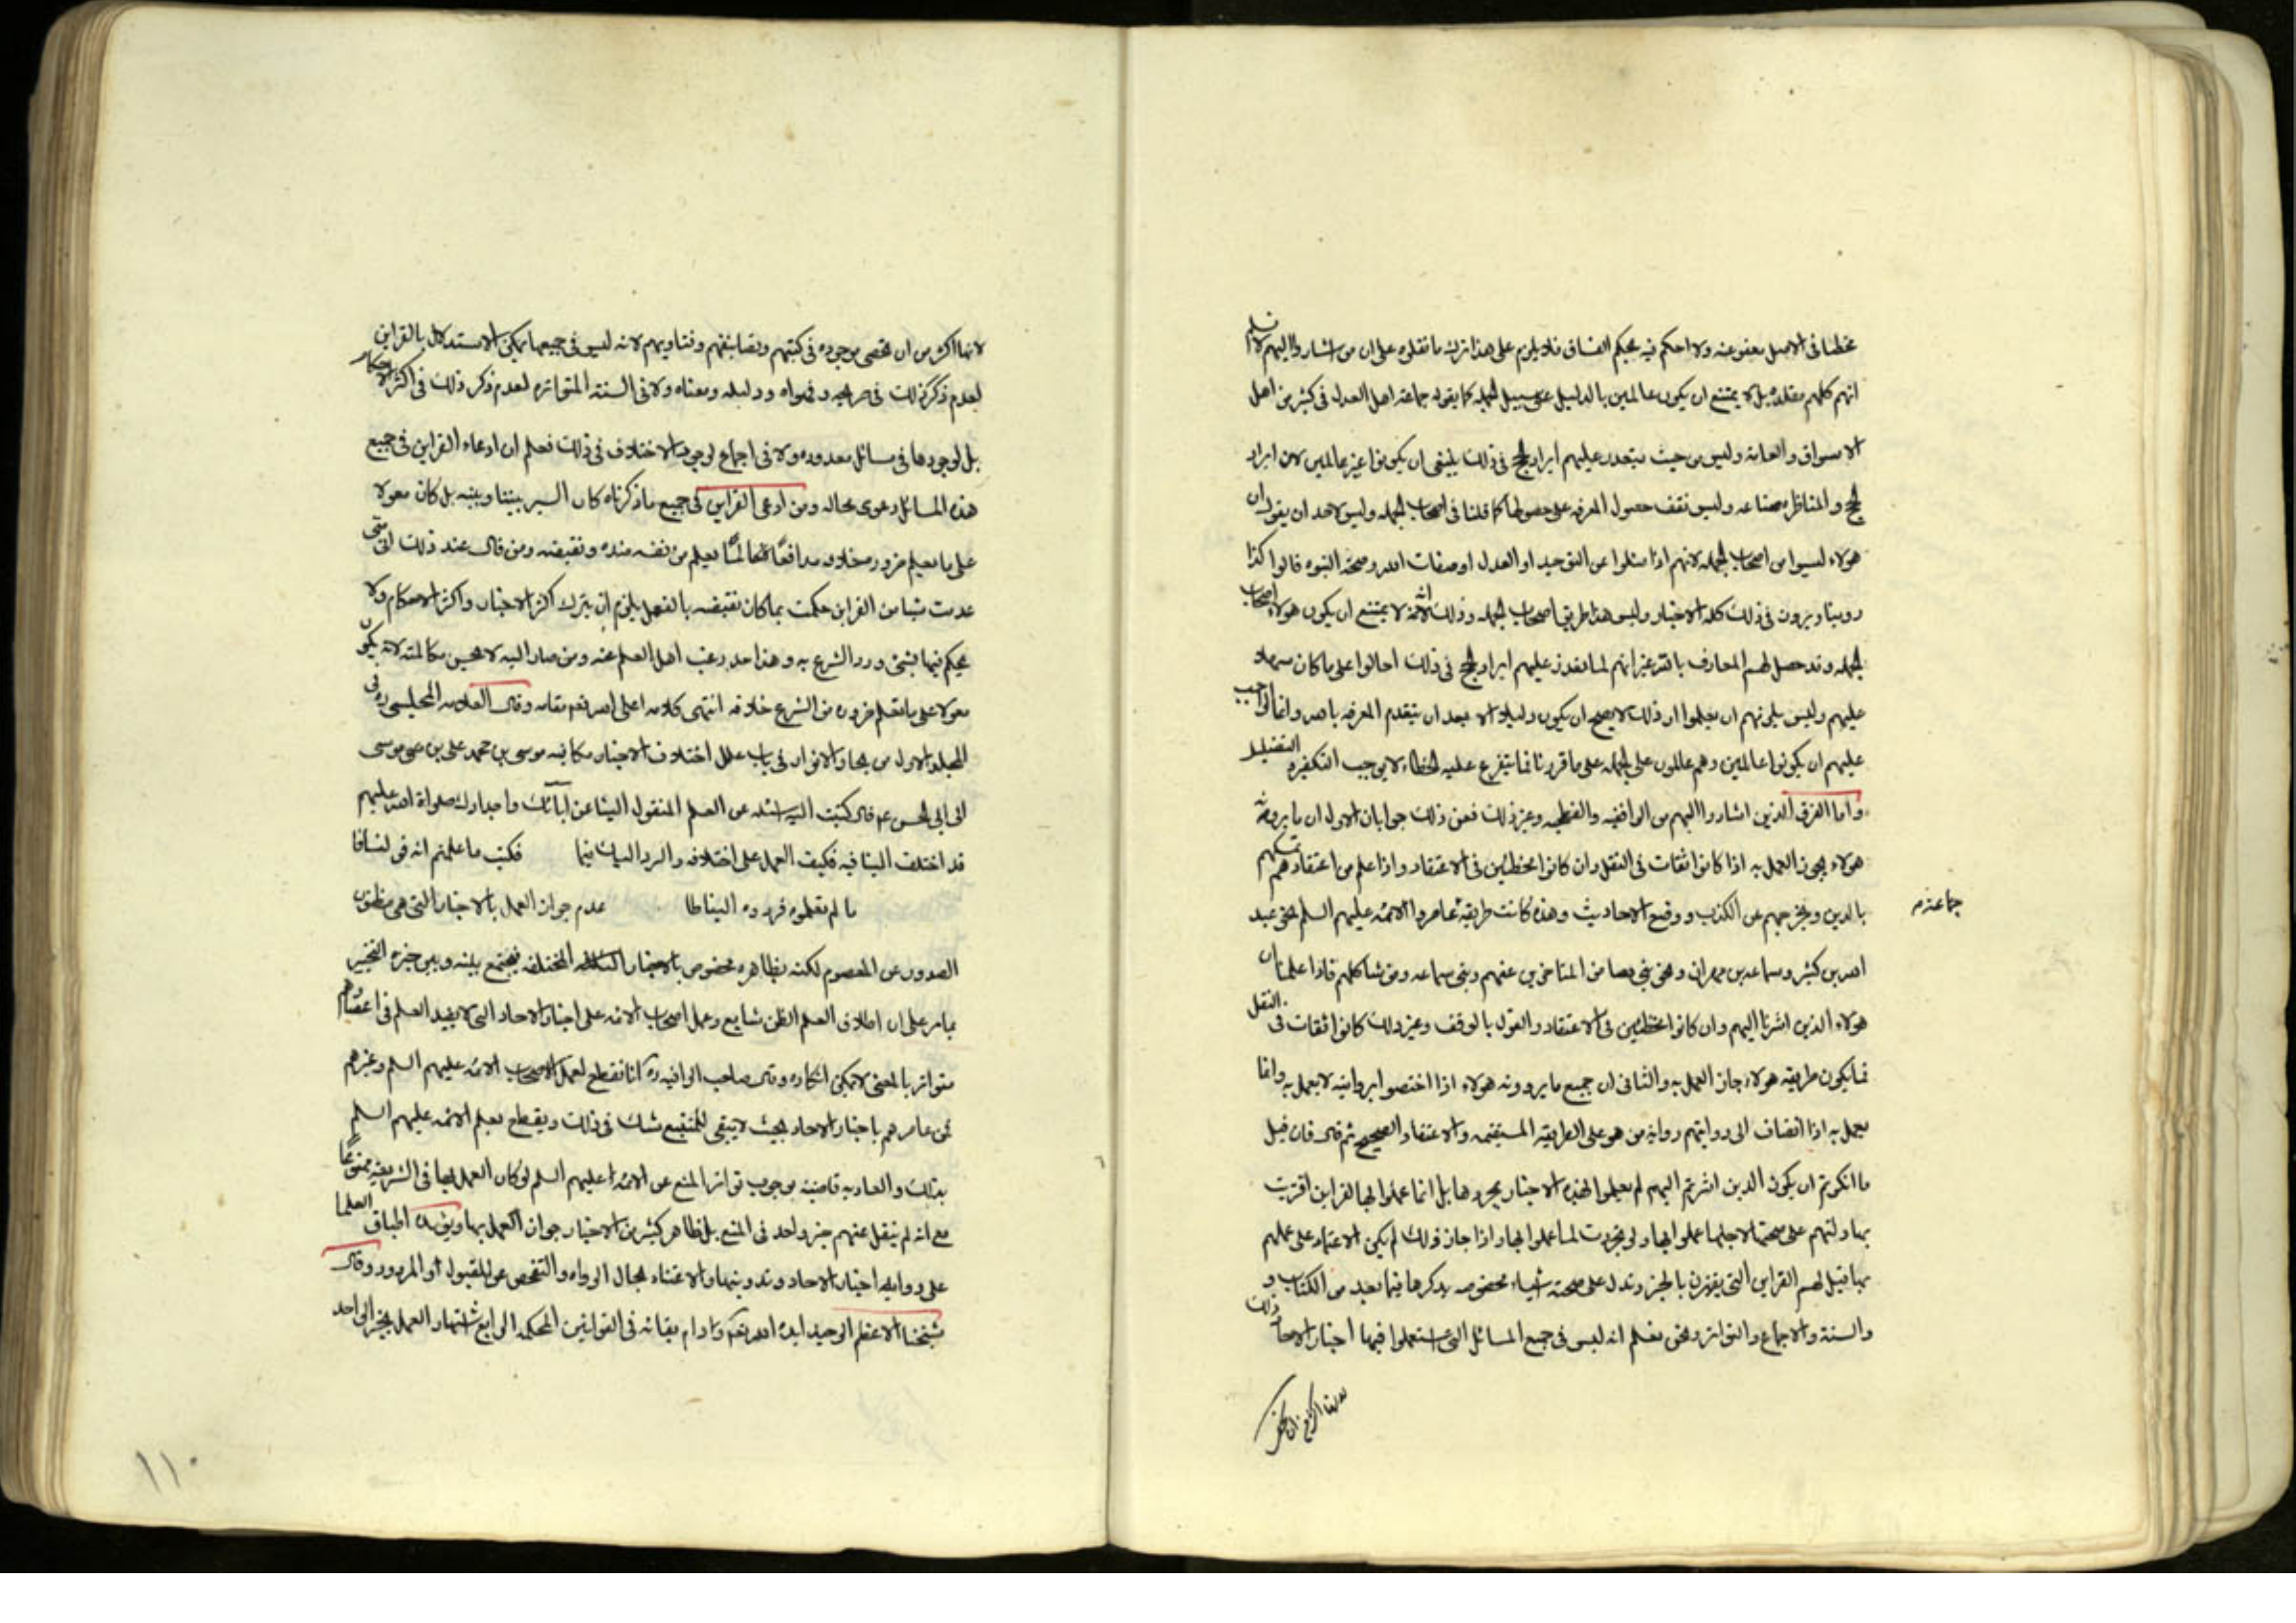 مخطئا في الاصل معفو عنه ولا احكم فيه بحكم الفساق فلا يلزم على هذا ترك ما نقلوه على ان من اشاروا اليهم لا نسلم
انهم كلهم مقلده بل لا يمتنع ان يكون عالمين بالدليل على سبيل الجمله كما يقوله جماعه اهل العدل في كثير من اهل
الاسواق والعامه وليس من حيث يتعذر عليهم ايراد الحجج في ذلك ينبغي ان يكونوا غير عالمين لان ايراد
الحجج والمناظره صناعه وليس تقف حصول المعرفه على حصولها كما قلنا في اصحاب الجمله وليس لاحد ان يقول ان
هولاء ليسوا من اصحاب الجمله لانهم اذا سئلوا عن التوحيد او العدل او صفات الله وصحه النبوه قالوا كذا
روينا ويروون في ذلك كله الاخبار وليس هذا طريق اصحاب الجمله وذلك انه لا يمتنع ان يكون هولاء اصحاب
الجمله وقد حصل لهم المعارف بالله غير انهم لما تعذر عليهم ايراد الحجج في ذلك احالوا على ما كان سهلا
عليهم وليس يلزمهم ان يعلموا ان ذلك لا يصح ان يكون دليلا الا بعد ان يتقدم المعرفه بالله وانما الواجب
عليهم ان يكونوا عالمين وهم عالمون على الجمله على ما قررنا فما يتفرع عليه الخطاء لا يوجب التكفير و التضليل
واما الفرق الذين اشاروا اليهم من الواقفيه والفطحيه وغير ذلك فعن ذلك جوابان الاول ان ما يرويه
هولاء يجوز العمل به اذا كانوا ثقات في النقل وان كانوا مخطئين في الاعتقاد واذا علم من اعتقادهم تمسكهم
بالدين وتحرجهم عن الكذب ووضع الاحاديث وهذه كانت طريقه جماعه عاصروا الائمه عليهم السلم نحو عبد
الله بن كثير وسماعه بن مهران ونحو بني فضا من المتاخرين عنهم وبني سماعه ومن شاكلهم فاذا علمنا ان
هولاء الذين اشرنا اليهم وان كانوا مخطئين في الاعتقاد والقول بالوقف وغير ذلك كانوا ثقات في النقل
فما يكون طريقه هولاء جاز العمل به والثاني ان جميع ما يرويه هولاء اذا اختصوا بروايته لا يعمل به وانما
يعمل به اذا انضاف الى روايتهم روايه من هو على الطريقه المستقيمه والاعتقاد الصحيح ثم قال فان قيل
ما انكرتم ان يكون الذين اشرتم اليهم لم يعملوا بهذه الاخبار بمجردها بل انما عملوا بها لقراين اقترنت
بها دلتهم على صحتها لاجلها عملوا بها ولو تجردت لما عملوا بها واذا جاز ذلك لم يكن الاعتماد على عملهم
بها قيل لهم القراين التي يقترن بالخبر وتدل على صحته اشياء مخصوصه يذكرها فيما بعد من الكتاب و
والسنه والاجماع والتواتر ونحن نعلم انه ليس في جميع المسائل التي استعملوا فيها اخبار الاحاد ذلك
جماعه م
لانها اكثر من ان تحصى موجوده في كتبهم وتصانيفهم وفتاويهم لانه ليس في جميعها يمكن الاستدلال بالقراين
لعدم ذكر ذلك في صريحه وفحواه ودليله ومعناه ولا في السنه المتواتره لعدم ذكر ذلك في اكثر الاحكام
بل لوجودها في مسائل معدوده ولا في اجماع لوجود الاختلاف في ذلك فعلم ان ادعاء القراين في جميع
هذه المسائل دعوى محاله ومن ادعى القراين في جميع ما ذكرناه كان السبر بيننا وبينه بل كان معولا
على ما يعلم ضروره خلافه مدافعًا لما يعلم من نفسه ضده ونقيضه ومن قال عند ذلك اني متى
عدمت شيئا من القراين حكمت بما كان نقيضه بالعقل يلزم ان يترك اكثر الاخبار واكثر الاحكام ولا
يحكم فيها بشئ ورد الشرع به وهذا حد رغب اهل العلم عنه ومن صار اليه لا يحسن مكالمته لانه يكون
معولا على ما يعلم ضروره من الشرع خلافه انتهى كلامه اعلى الله تعه مقامه وقال العلامه المجلسي ره في
المجلد الاول من بحار الانوار في باب علل اختلاف الاخبار مكاتبه موسى بن محمد على بن موسى
الى ابي الحسن ع قال كتبت اليه اسئله عن العلم المنقول الينا عن آبائك واجدادك صلواة الله عليهم
قد اختلف الينا فيه فكيف العمل على اختلافه والرد اليك فيما فكتب ما علمتم انه قولنا
ما لم تعلموه فردوه الينا عدم جواز العمل بالاخبار التي هي مظنون
الصدور عن المعصوم لكنه بظاهره مخصوص بالاخبار المختلفه فيجمع بينه وبين خبره التخيير
بما مر على ان اطلاق العلم الظن شايع وعمل اصحاب الائمه على اخبار الاحاد التي لا يفيد العلم في اعصارهم
متواتر بالمعنى لا يمكن انكاره وقال صاحب الوافيه ره انا نقطع بعمل اصحاب الائمه عليهم السلم وغيرهم
ممن عاصرهم باخبار الاحاد بحيث لا يبقى للمتتبع شك في ذلك ويقطع بعلم الائمه عليهم السلم
بذلك والعاده قاضيه بوجوب تواتر المنع عن الائمه عليهم السلم لو كان العمل بها في الشريعه ممنوعًا
مع انه لم ينقل عنهم خبر واحد في المنع بل ظاهر كثير من الاخبار جواز العمل بها اطباق العلما
على روايه اخبار الاحاد وتدوينها والاعتناء بحال الرواه والتفحص عن المقبول او المردود وقال
شيخنا الاعظم الوحيد ايده الله تعه وادام بقائه في القوانين المحكمه الرابع اشتهار العمل بخبر الواحد
١١٠